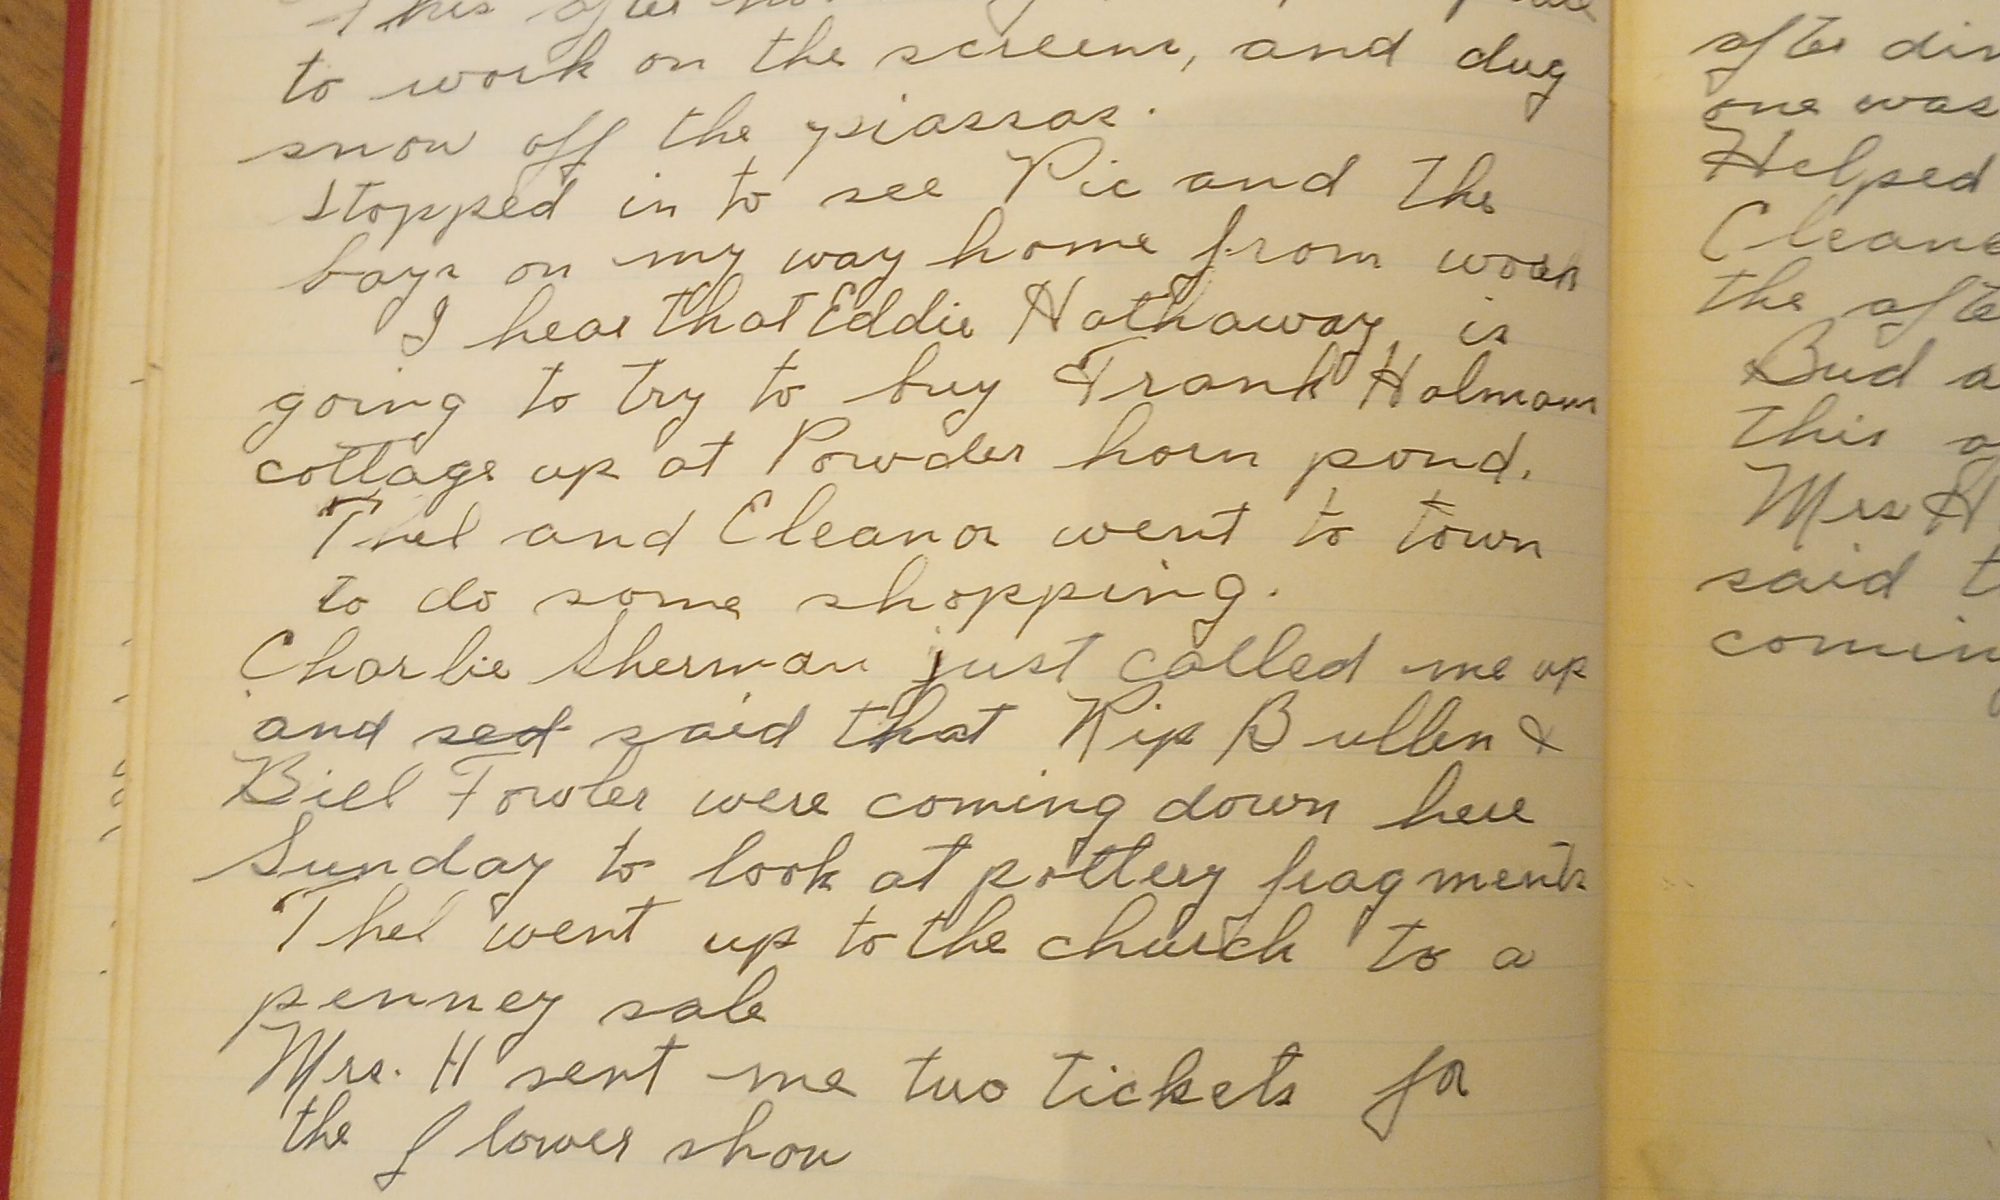 This after
to work on the screens, and dug
snow off the piassas.
Stopped in to see Pic and the
boys on my way home from work
I hear that Eddie Hathaway is
going to try to buy Frank Holmans
cottage up at Powder horn pond.
Thel and Eleanor went to town
to do some shopping.
Charlie Sherman just called me up
and sed said that Rip Bullen &
Bill Fowler were coming down here
Sunday to look at pottery fragments
Thel went up to the church to a
penney sale
Mrs. H sent me two tickets for
the flower show
after
one was
Helped
the
Bud
this
Mrs H
said